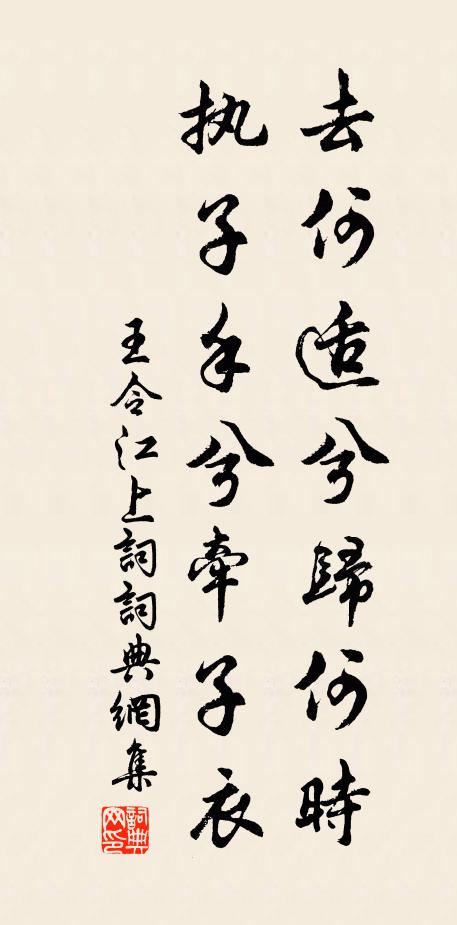 去何适兮歸何時
执子手兮牽子衣
王令江上詞詞典網集
詞典網印